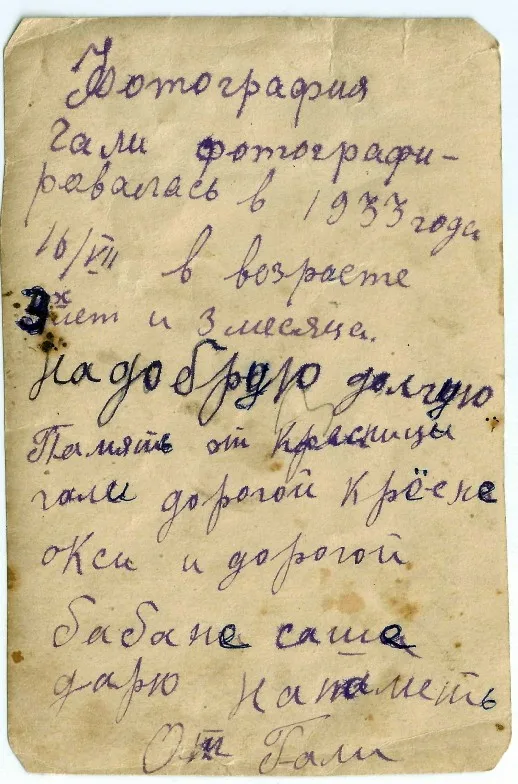 Фотография
Гали фотографи-
ровалась в 1933 года
16/VII в возрасте
3х лет и 3 месяца.
на добрую долгую
Память от крёсницы
гали дорогой крёсне
окси и дорогой
бабане саше
дарю на паметь
От Гали